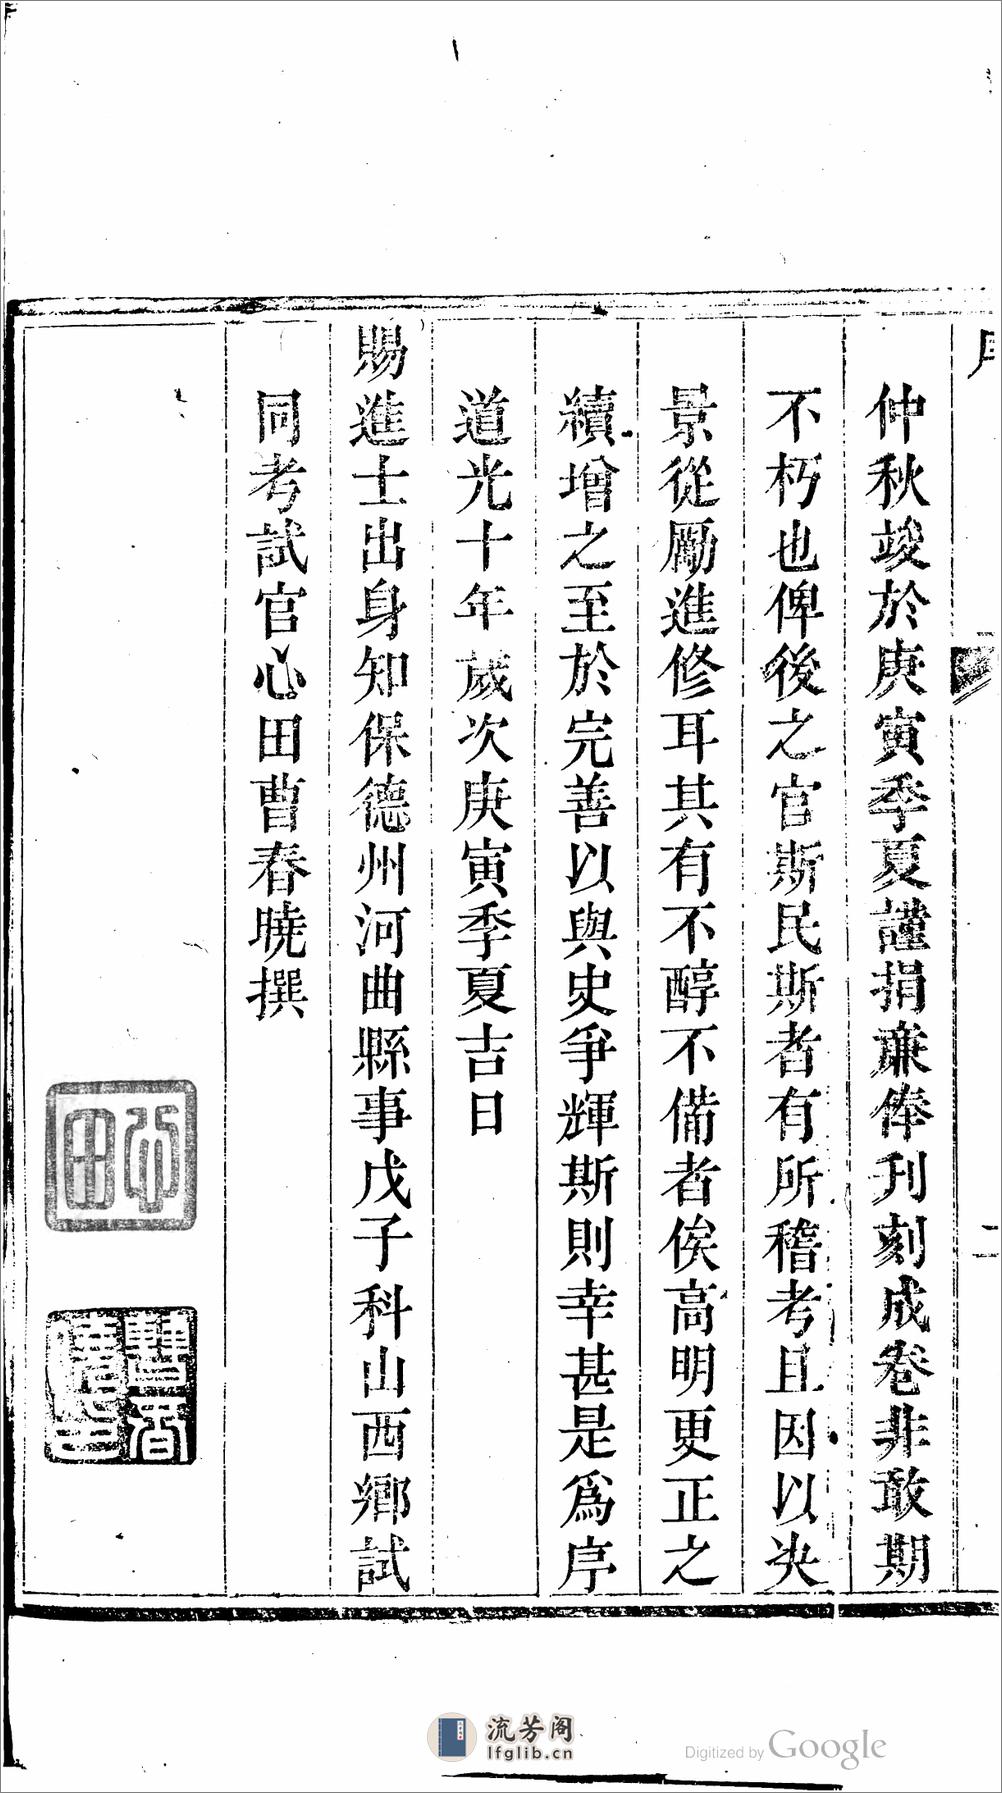 仲秋竣於庚寅季夏謹捐亷俸刋刻成卷非敢期
不朽也俾後之官斯民斯者有所稽考且因以决
景從勵進修耳其有不醇不備者俟高明更正之
續增之至於完善以與史爭輝斯則幸甚是爲序
道光十年歲次庚寅季夏吉日
賜進士出身知保德州河曲縣事戊子科山西鄉試
同考試官心田曹春曉撰
心田
曹春曉印
二
流芳阁
lfglib.cn
Digitized by Google